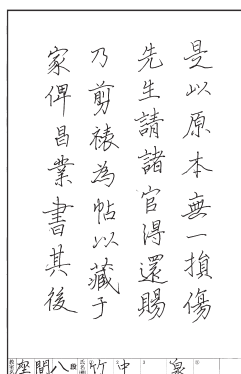 是以原本無一損傷
先生請諸官得還賜
乃剪裱為帖以藏于
家俾昌業書其後